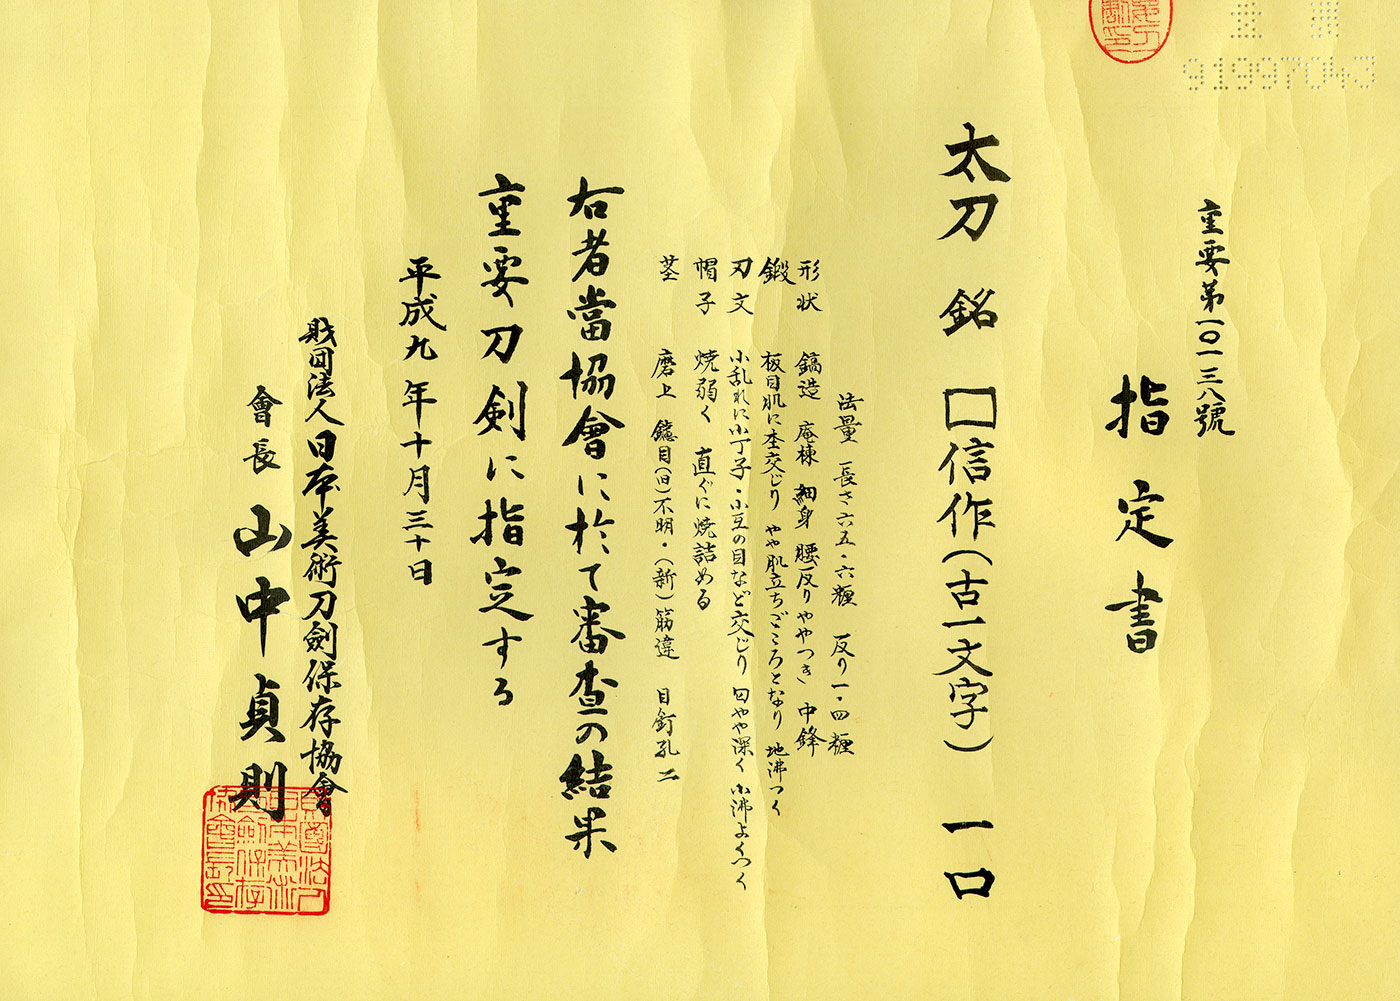 重要第一〇一三八號
指定書
太刀 銘 □信作(古一文字) 一口
法量 長さ六五・六糎 反り一・四糎
形状 鎬造 庵棟 細身 腰反りややつき 中鋒
鍛 板目肌に杢交じり やや肌立ちごころとなり 地沸つく
刃文 小乱れに小丁子・小互の目など交じり 匂やや深く 小沸よくつく
帽子 焼弱く 直ぐに焼詰める
茎 磨上 鑢目(旧)不明・(新)筋違 目釘孔二
右者當協會に於て審査の結果
重要刀剣に指定する
平成九年十月三十日
財団法人日本美術刀劍保存協會
會長 山中貞則
91997043